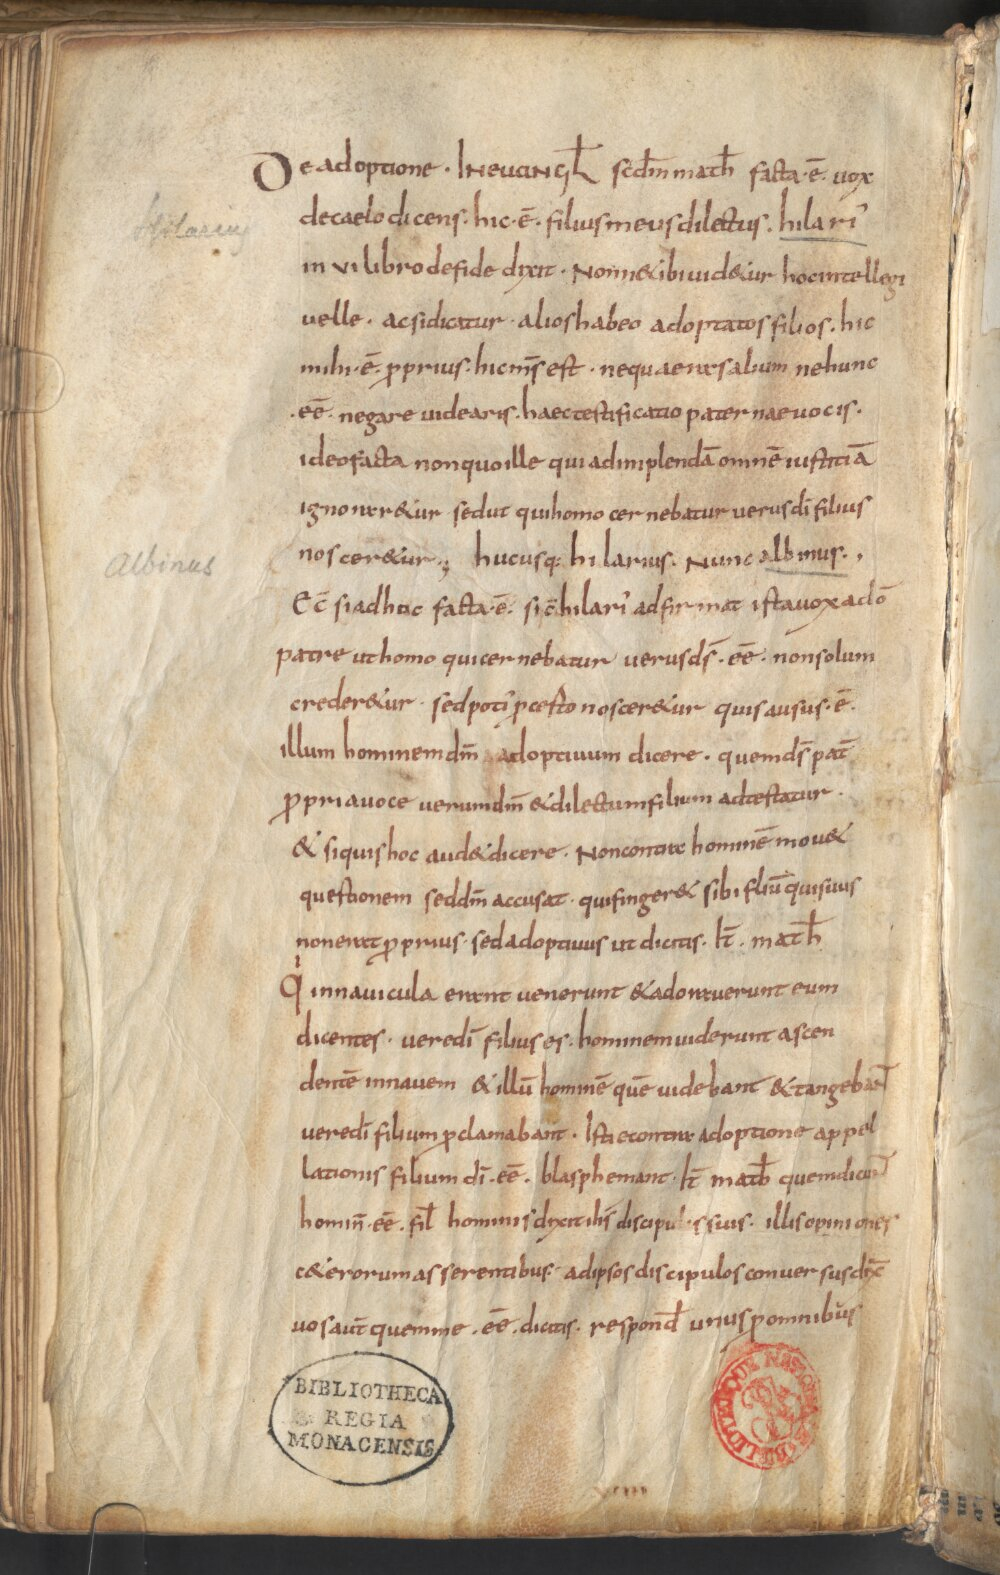 De adoptione · IN EUANGL̄ scd̄m math̄ facta · ē · uox
de caelo dicens · hic · ē · filius meus dilectus · hilari'
Hilarius
in VI libro de fide dixit · Nonn& ibi uid&ur hoc intellegi
uelle · ac si dicatur · alios habeo adoptatos filios · hic
mihi · ē · p̄prius · hic m̄s est · ne quaeras alium ne hunc
· eē · negare uidearis · haec testificatio paternae uocis ·
ideo facta non quo ille qui adimplendā omnē iustitiā
ignorar&ur sed ut qui homo cernebatur uerus dī filius
noscer&ur ·,; hucusq: hilarius · Nunc albinus · ,
Albinus
Ec̄ si ad hoc facta · ē · sic̄ hilari' adfirmat ista uox a dō
patre ut homo qui cernebatur uerus ds̄ · eē · non solum
creder&ur · sed poti' p̄ certo noscer&ur quis ausus · ē ·
illum hominem dn̄m adoptiuum dicere · quem ds̄ pat̄
p̄pria uoce uerum dn̄m & dilectum filium adtestatur ·
& si quis hoc aud& dicere · Non contra hominē mou&
questionem sed dn̄m accusat · qui finger& sibi filiū qui suus
non erat p̄prius · sed adoptiuus ut dicitis · It̄ · math̄
Q̇ in nauicula erant uenerunt & adorauerunt eum
dicentes · uere dī filius es · hominem uiderunt ascen
dentē in nauem & illū hominē quē uidebant & tangebant
uere dī filium p̄clamabant · Isti econtra adoptione appel
lationis filium dī · eē · blasphemant · It̄ math̄ quem dicunt
homin̄ · eē · fil̄ hominis dixit ih̄s discipulis suis · illis opiniones
c&erorum asserentibus · ad ipsos discipulos conuersus dix̄
uos aut̄ quem me · eē · dicitis · respond̄ unus p̄ omnibus
BIBLIOTHECA
REGIA
MONACENSIS